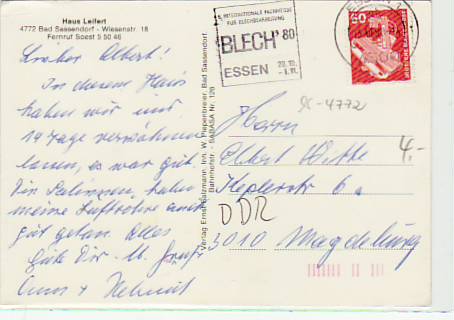 Haus Leifert
4772 Bad Sassendorf - Wiesenstr. 18
Fernruf Soest 5 50 46
Lieber Albert!
In diesem Haus
haben wir uns
14 Tage verwöhnen
lassen, es war gut
Die Salinen, haben
meine Luftröhre auch
gut getan. Alles
Gute Dir u. Gruß
Anni + Helmut
Verlag Ernst Salzmann, Inh. W. Piepenbreier, Bad Sassendorf
Bahnhofstr. - SABASA Nr. 129
5. INTERNATIONALE FACHMESSE
FÜR BLECHBEARBEITUNG
BLECH '80
ESSEN 22.10.
ESSEN 1
60
DEUTSCHE BUNDESPOST
4772
4.-
Herrn
Albert Witte
Keplerstr 6a
DDR
3010 Magdeburg